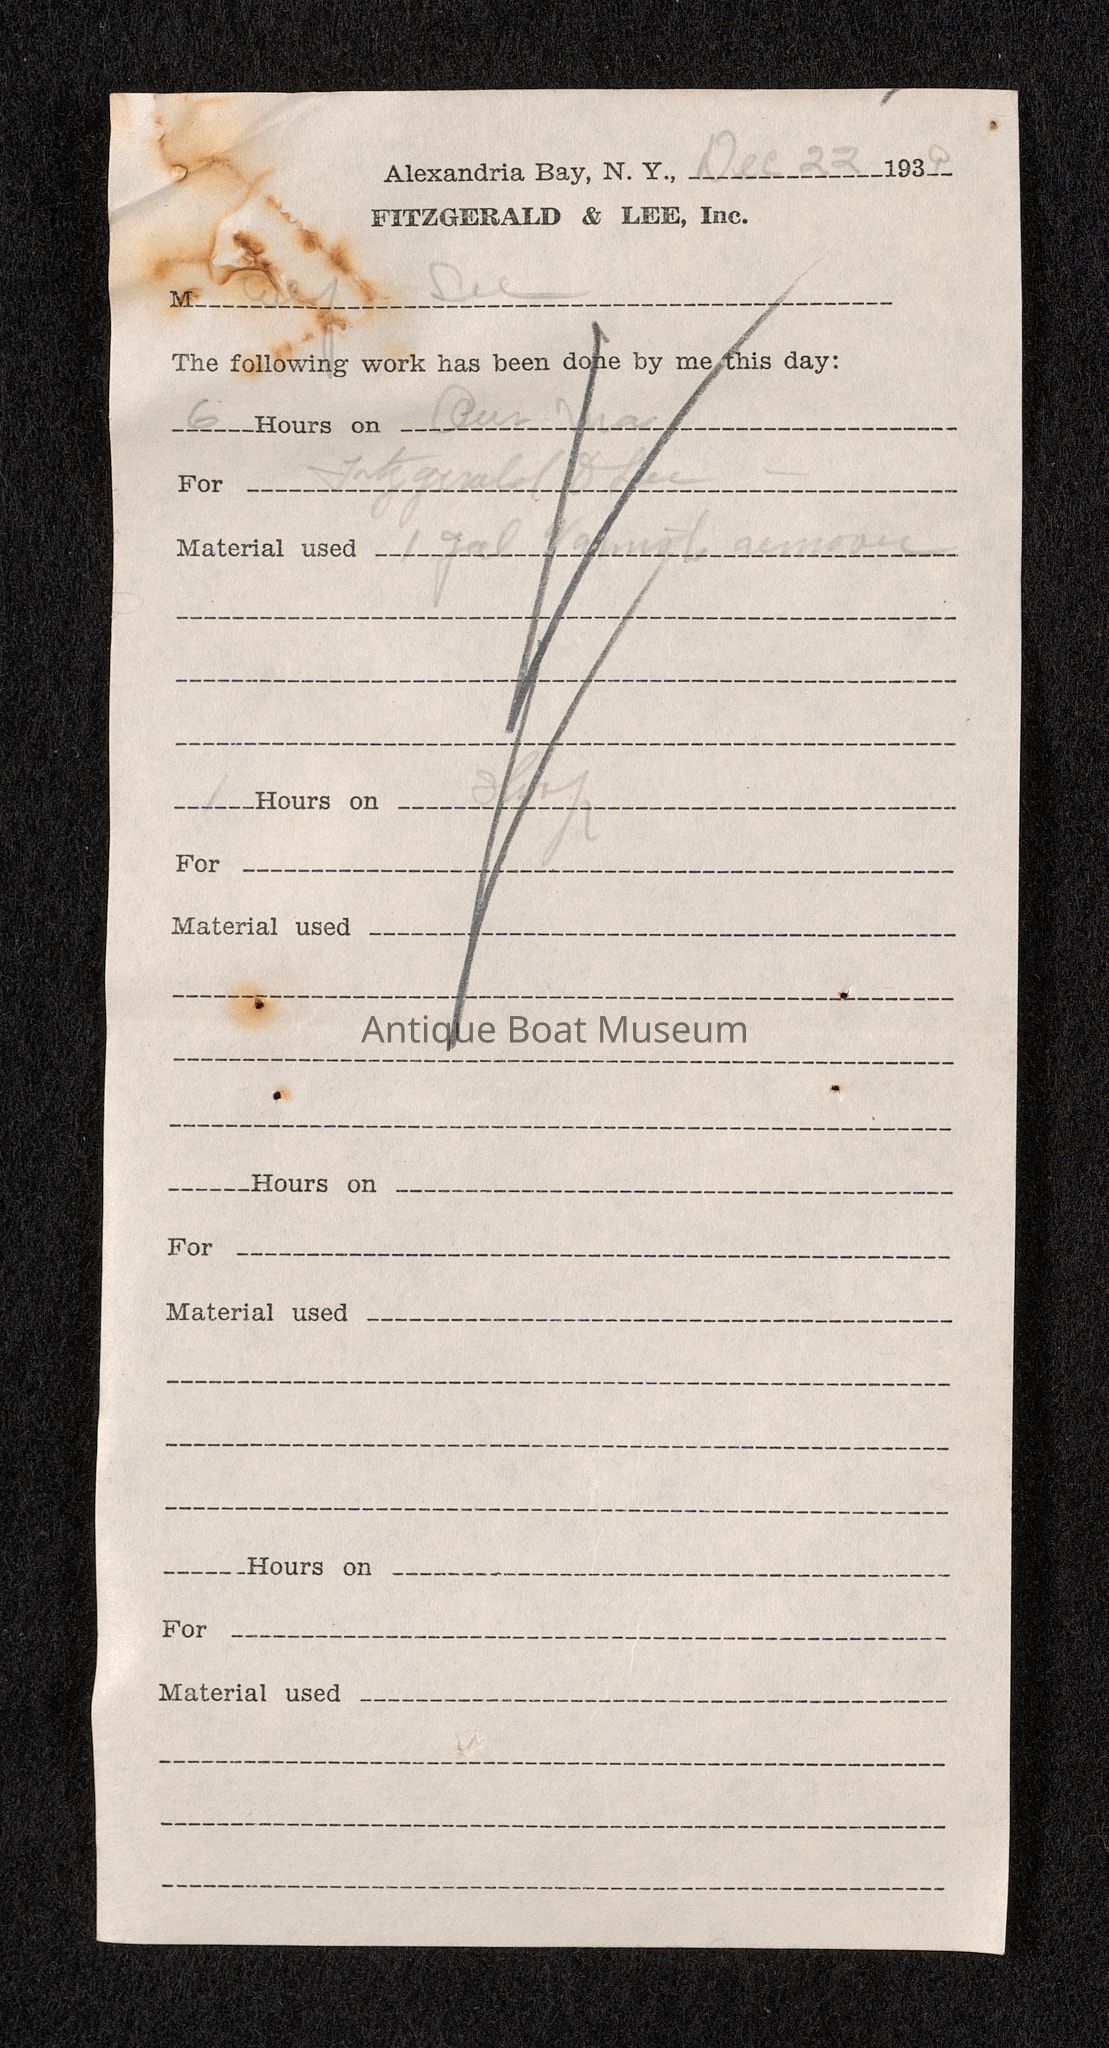 Alexandria Bay, N. Y., Dec 22 193
FITZGERALD & LEE, Inc.
M Lee
The following work has been done by me this day:
6 Hours on
For Fitzgerald & Lee
Material used 1 gal Varnish remover
1 Hours on Shop
For
Material used
Antique Boat Museum
Hours on
For
Material used
Hours on
For
Material used